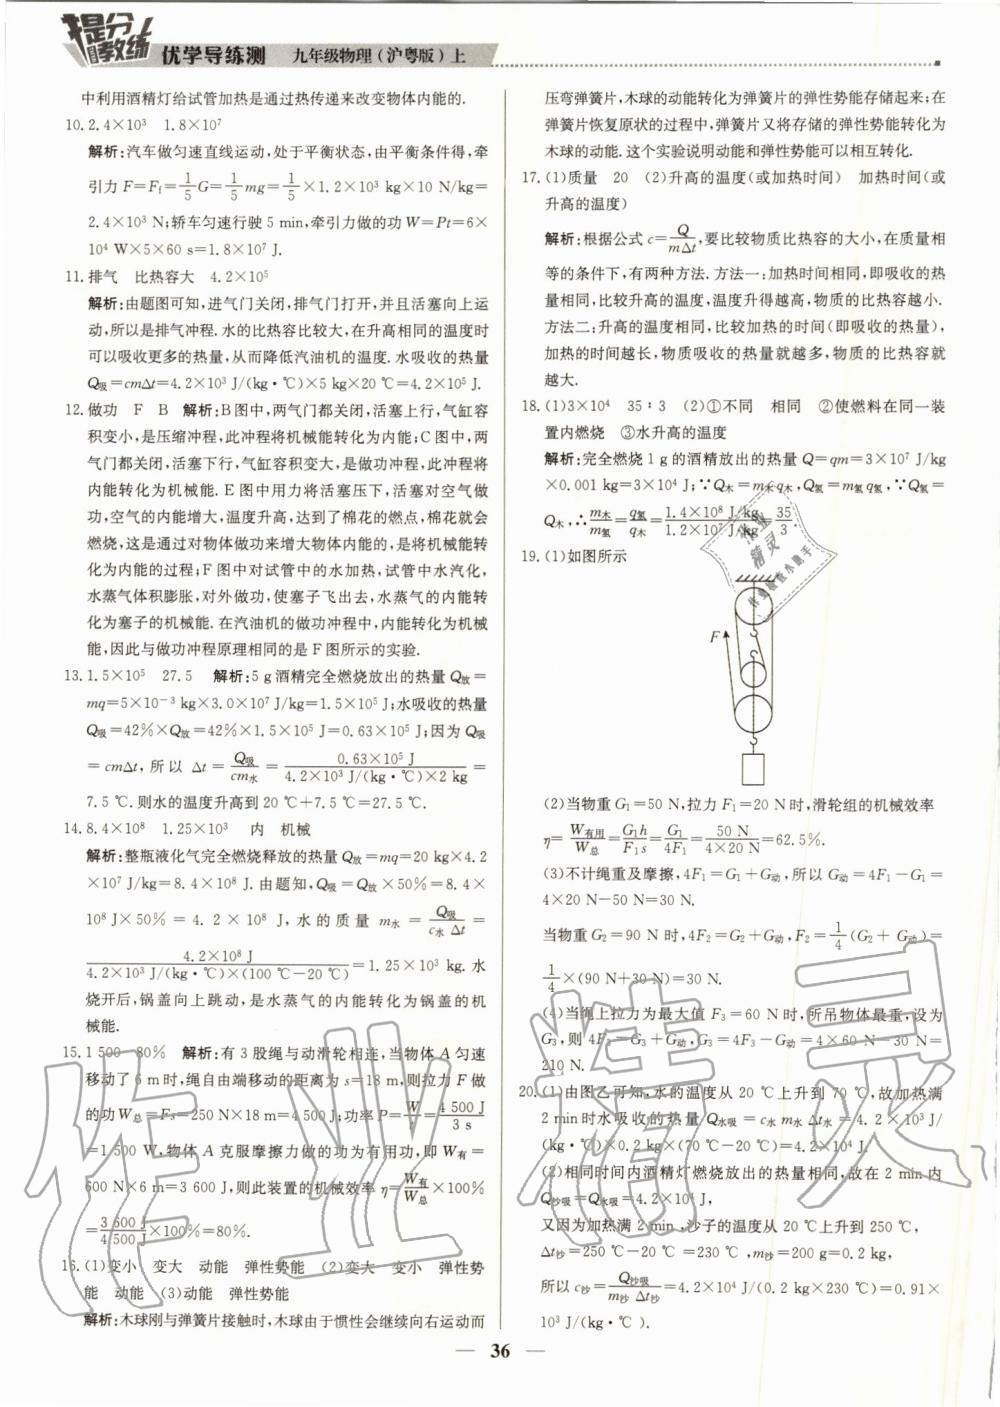 提分教练 优学导练测 九年级物理(沪粤版)上
中利用酒精灯给试管加热是通过热传递来改变物体内能的.
10. 2.4×10³ 1.8×10⁷
解析:汽车做匀速直线运动,处于平衡状态,由平衡条件得,牵
引力 F=Ff=1/5G=1/5mg=1/5×1.2×10³ kg×10 N/kg=
2.4×10³ N;轿车匀速行驶 5 min,牵引力做的功 W=Pt=6×
10⁴ W×5×60 s=1.8×10⁷ J.
11. 排气 比热容大 4.2×10⁵
解析:由题图可知,进气门关闭,排气门打开,并且活塞向上运
动,所以是排气冲程.水的比热容比较大,在升高相同的温度时
可以吸收更多的热量,从而降低汽油机的温度.水吸收的热量
Q吸=cmΔt=4.2×10³ J/(kg·℃)×5 kg×20 ℃=4.2×10⁵ J.
12. 做功 F B 解析:B图中,两气门都关闭,活塞上行,气缸容
积变小,是压缩冲程,此冲程将机械能转化为内能;C图中,两
气门都关闭,活塞下行,气缸容积变大,是做功冲程,此冲程将
内能转化为机械能.E图中用力将活塞压下,活塞对空气做
功,空气的内能增大,温度升高,达到了棉花的燃点,棉花就会
燃烧,这是通过对物体做功来增大物体内能的,是将机械能转
化为内能的过程;F图中对试管中的水加热,试管中水汽化,
水蒸气体积膨胀,对外做功,使塞子飞出去,水蒸气的内能转
化为塞子的机械能.在汽油机的做功冲程中,内能转化为机械
能,因此与做功冲程原理相同的是F图所示的实验.
13. 1.5×10⁵ 27.5 解析:5 g酒精完全燃烧放出的热量 Q放=
mq=5×10⁻³ kg×3.0×10⁷ J/kg=1.5×10⁵ J;水吸收的热量
Q吸=42%×Q放=42%×1.5×10⁵ J=0.63×10⁵ J;因为 Q吸
=cmΔt,所以 Δt=Q吸/cm水=0.63×10⁵ J/4.2×10³ J/(kg·℃)×2 kg=
7.5 ℃.则水的温度升高到 20 ℃+7.5 ℃=27.5 ℃.
14. 8.4×10⁸ 1.25×10³ 内 机械
解析:整瓶液化气完全燃烧释放的热量 Q放=mq=20 kg×4.2
×10⁷ J/kg=8.4×10⁸ J.由题知,Q吸=Q放×50%=8.4×
10⁸ J×50%=4.2×10⁸ J,水的质量 m水=Q吸/c水 Δt=
4.2×10⁸ J/4.2×10³ J/(kg·℃)×(100 ℃-20 ℃)=1.25×10³ kg.水
烧开后,锅盖向上跳动,是水蒸气的内能转化为锅盖的机
械能.
15. 1 500 80% 解析:有 3 股绳与动滑轮相连,当物体 A 匀速
移动了 6 m时,绳自由端移动的距离为 s=18 m,则拉力 F 做
的功 W总=Fs=250 N×18 m=4 500 J;功率 P=W/t=4 500 J/3 s
=1 500 W,物体 A 克服摩擦力做的功为有用功,即 W有=
600 N×6 m=3 600 J,则此装置的机械效率 η=W有/W总×100%
=3 600 J/4 500 J×100%=80%.
16. (1)变小 变大 动能 弹性势能 (2)变大 变小 弹性势
能 动能 (3)动能 弹性势能
解析:木球刚与弹簧片接触时,木球由于惯性会继续向右运动而
压弯弹簧片,木球的动能转化为弹簧片的弹性势能存储起来;在
弹簧片恢复原状的过程中,弹簧片又将存储的弹性势能转化为
木球的动能.这个实验说明动能和弹性势能可以相互转化.
17. (1)质量 20 (2)升高的温度(或加热时间) 加热时间(或
升高的温度)
解析:根据公式 c=Q/mΔt,要比较物质比热容的大小,在质量相
等的条件下,有两种方法.方法一:加热时间相同,即吸收的热
量相同,比较升高的温度,温度升得越高,物质的比热容越小.
方法二:升高的温度相同,比较加热的时间(即吸收的热量),
加热的时间越长,物质吸收的热量就越多,物质的比热容就
越大.
18. (1)3×10⁴ 35∶3 (2)①不同 相同 ②使燃料在同一装
置内燃烧 ③水升高的温度
解析:完全燃烧 1 g的酒精放出的热量 Q=qm=3×10⁷ J/kg
×0.001 kg=3×10⁴ J;∵Q木=m木q木,Q氢=m氢q氢,∵Q氢=
Q木,∴m木/m氢=q氢/q木=1.4×10⁸ J/kg/1.2×10⁷ J/kg=35/3.
19. (1)如图所示
F
(2)当物重 G₁=50 N,拉力 F₁=20 N时,滑轮组的机械效率
η=W有用/W总=G₁h/F₁s=G₁/4F₁=50 N/4×20 N=62.5%.
(3)不计绳重及摩擦,4F₁=G₁+G动,所以 G动=4F₁-G₁=
4×20 N-50 N=30 N.
当物重 G₂=90 N时,4F₂=G₂+G动,F₂=1/4(G₂+G动)=
1/4×(90 N+30 N)=30 N.
(4)当绳上拉力为最大值 F₃=60 N时,所吊物体最重,设为
G₃,则 4F₃=G₃+G动,G₃=4F₃-G动=4×60 N-30 N=
210 N.
20. (1)由图乙可知,水的温度从 20 ℃上升到 70 ℃,故加热满
2 min时水吸收的热量 Q水吸=c水 m水 Δt水=4.2×10³ J/
(kg·℃)×0.2 kg×(70 ℃-20 ℃)=4.2×10⁴ J.
(2)相同时间内酒精灯燃烧放出的热量相同,故在 2 min内
Q沙吸=Q水吸=4.2×10⁴ J,
又因为加热满 2 min,沙子的温度从 20 ℃上升到 250 ℃,
Δt沙=250 ℃-20 ℃=230 ℃,m沙=200 g=0.2 kg,
所以 c沙=Q沙吸/m沙 Δt沙=4.2×10⁴ J/(0.2 kg×230 ℃)=0.91×
10³ J/(kg·℃).
36
作业精灵
作业精灵
作业检查小助手